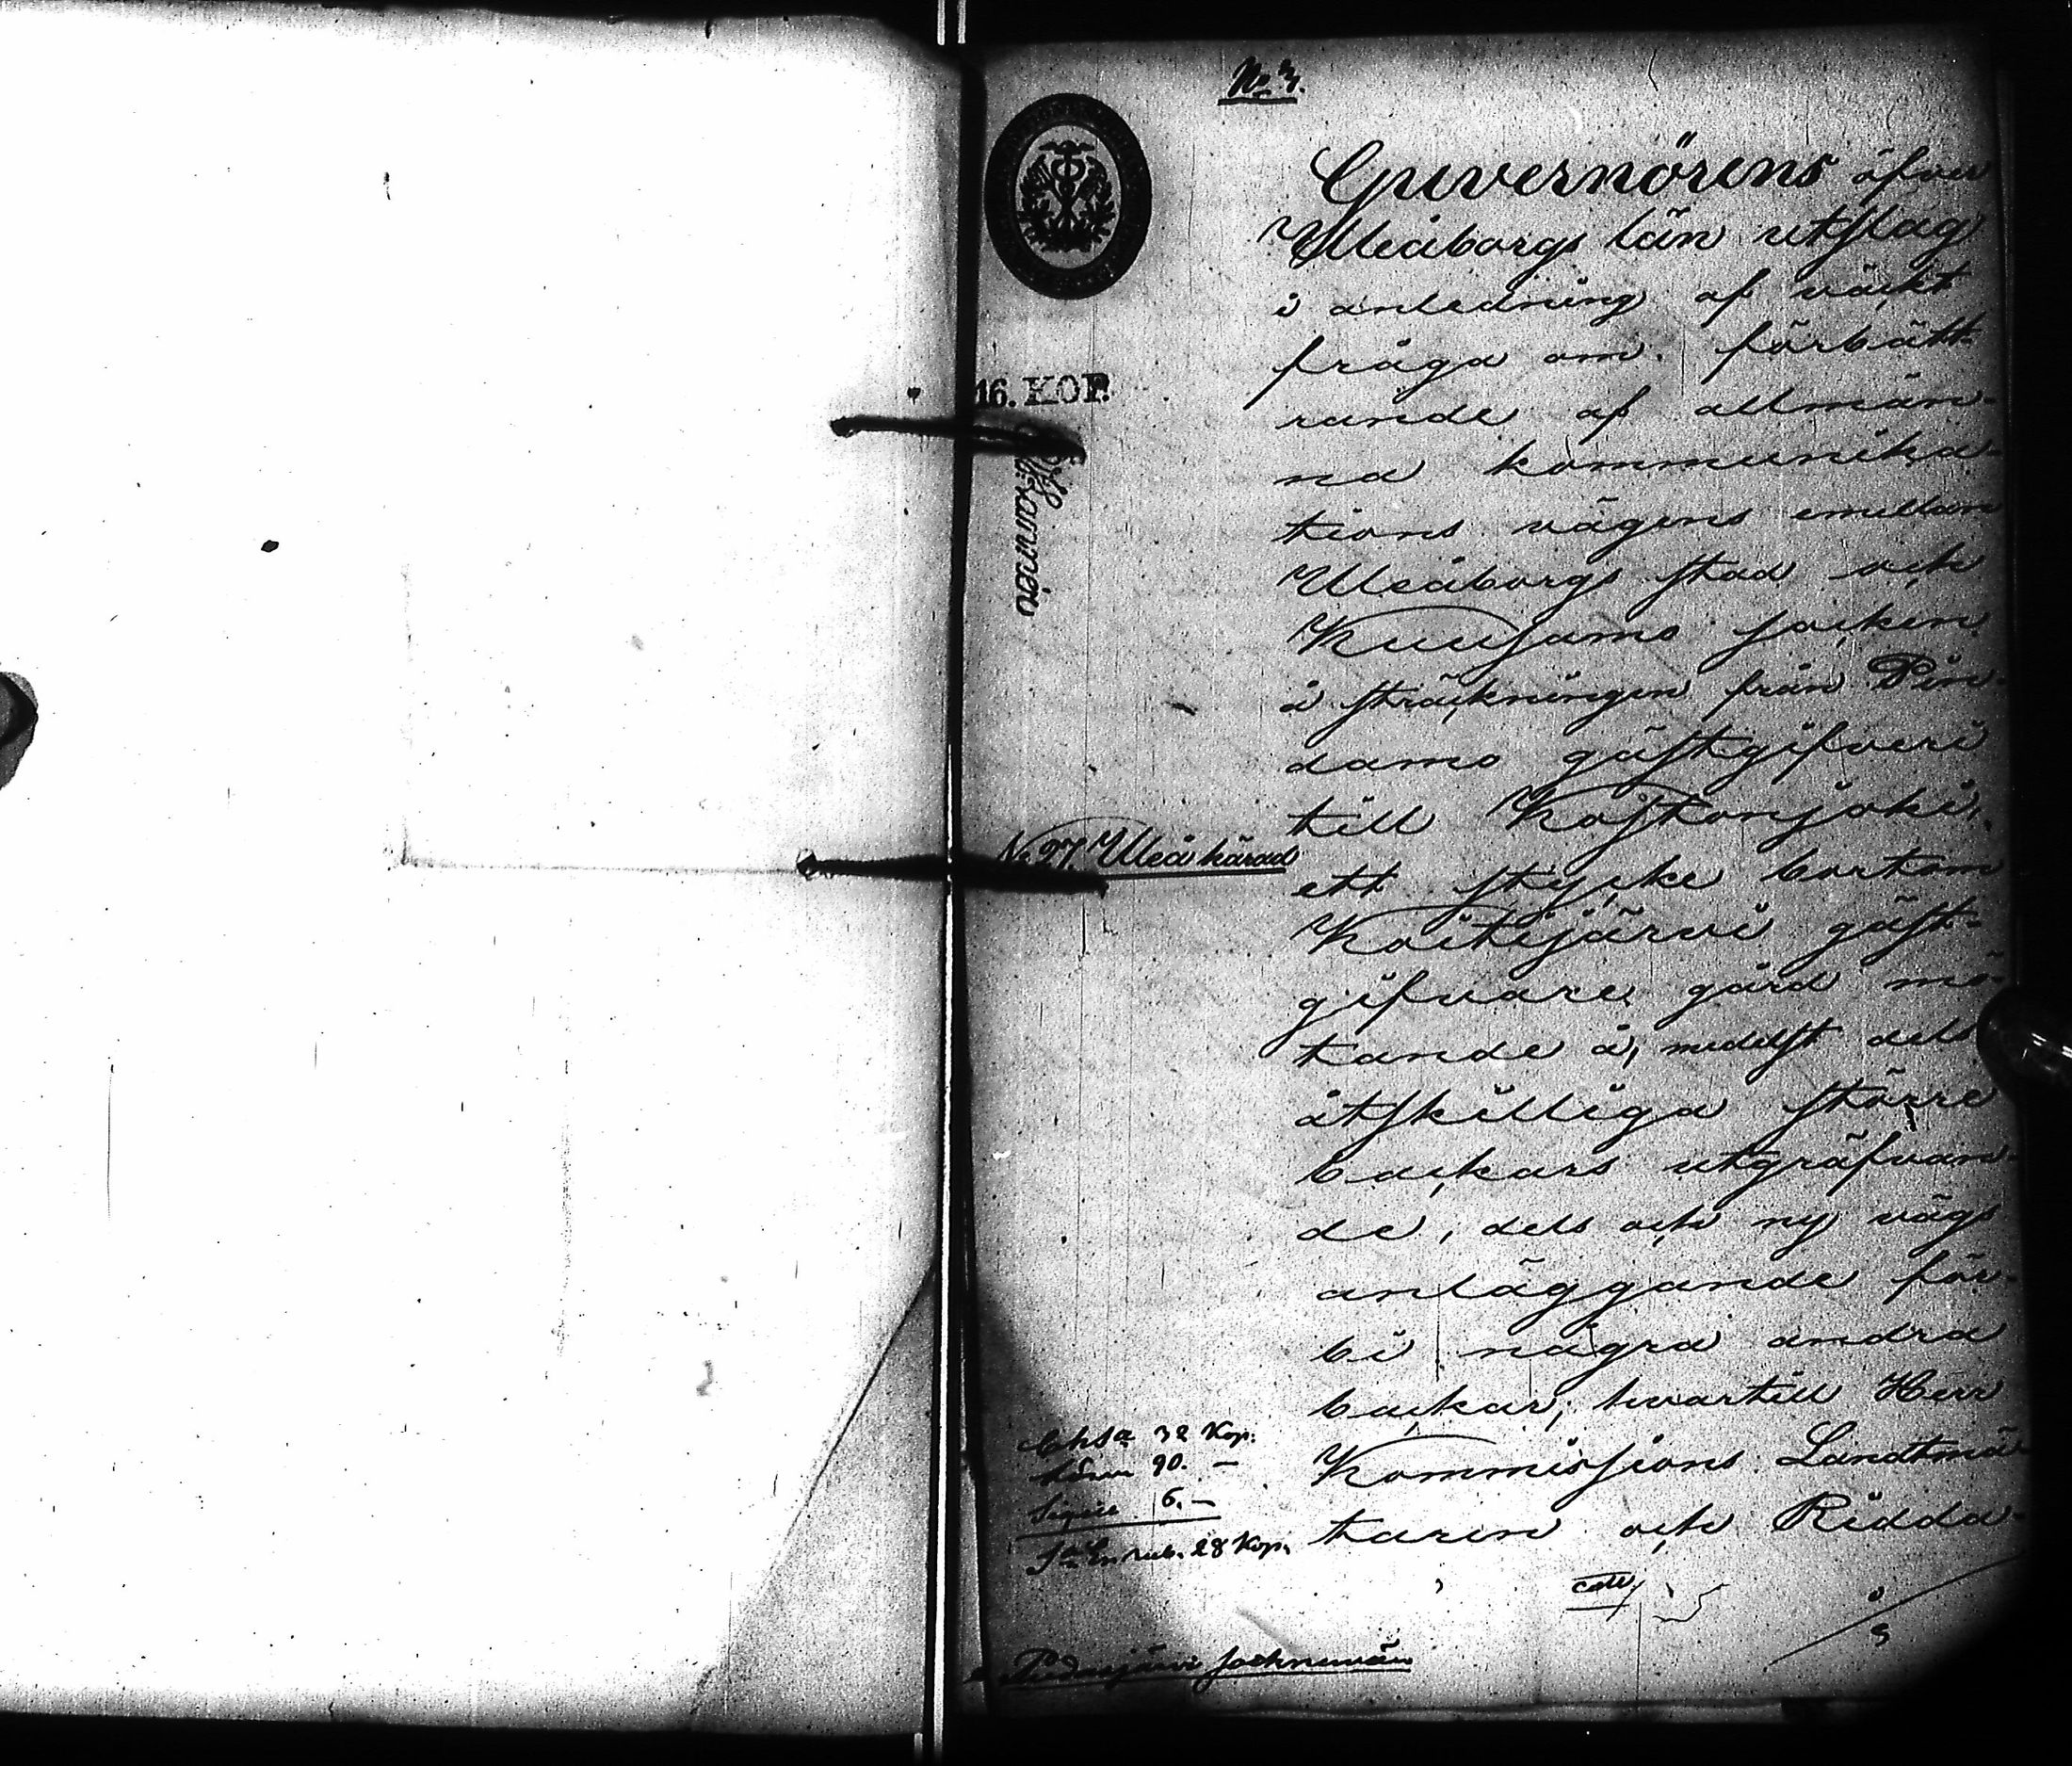 No 3.
Guvernörens öfver
Uleåborgs län utslag
i anledning af väckt
fråga om förbätt-
rande af allmän-
na kommunika-
tions vägens emellan
Uleåborgs stad och
Kuusamo socken
å sträckningen från Pin-
damo gästgifveri
till Kostonjoki,
ett stycke bortom
Koitijärvi gäst-
gifvare gård mö-
tande å, medelst dels
åtskilliga större
backars utgräfvan-
de, dels och ny vägs
anläggande för-
bi några andra
backar; hvartill Herr
Kommissions Landtmä-
taren och Ridda-
16. KOP.
No 27 Uleå härad
Chsa 32 Kop.
Lösen 90. —
Sigill 6. —
Sa En rub. 28 Kop.
Pudasjärvi sockneman